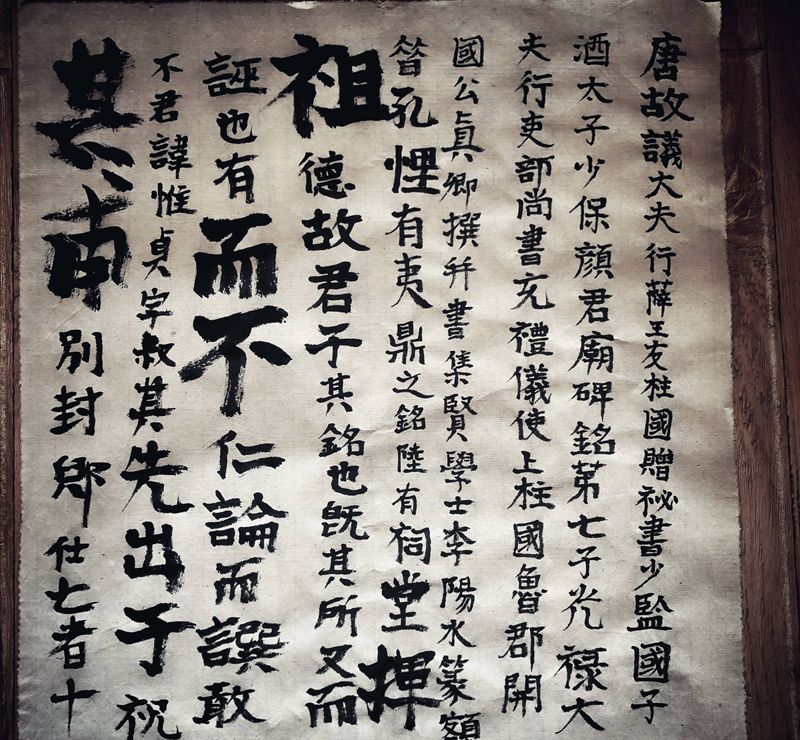 唐故議大夫行薛王友柱國贈祕書少監國子
酒太子少保顏君廟碑銘第七子光祿大
夫行吏部尚書充禮儀使上柱國魯郡開
國公眞卿撰并書集賢學士李陽水篆額
昔孔悝有夷鼎之銘陸有祠堂揮
祖德故君子其銘也既其所又而
誣也有而不仁論而譔敢
不君諱惟貞字叔其先出于祝
其南別封仕七者十